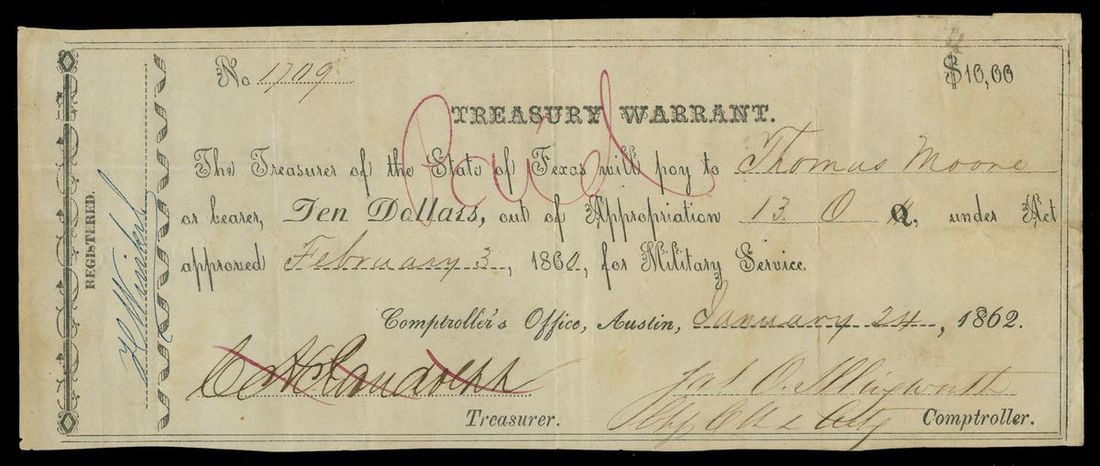 No 1709 $10,00
TREASURY WARRANT.
Paid
The Treasurer of the State of Texas will pay to Thomas Moore
or bearer, Ten Dollars, out of Appropriation 13. O Q, under Act
approved February 3, 1860, for Military Service.
Comptroller's Office, Austin, January 24, 1862.
C. H. Randolph
Treasurer.
Jas. O. Illingworth
Comptroller.
REGISTERED.